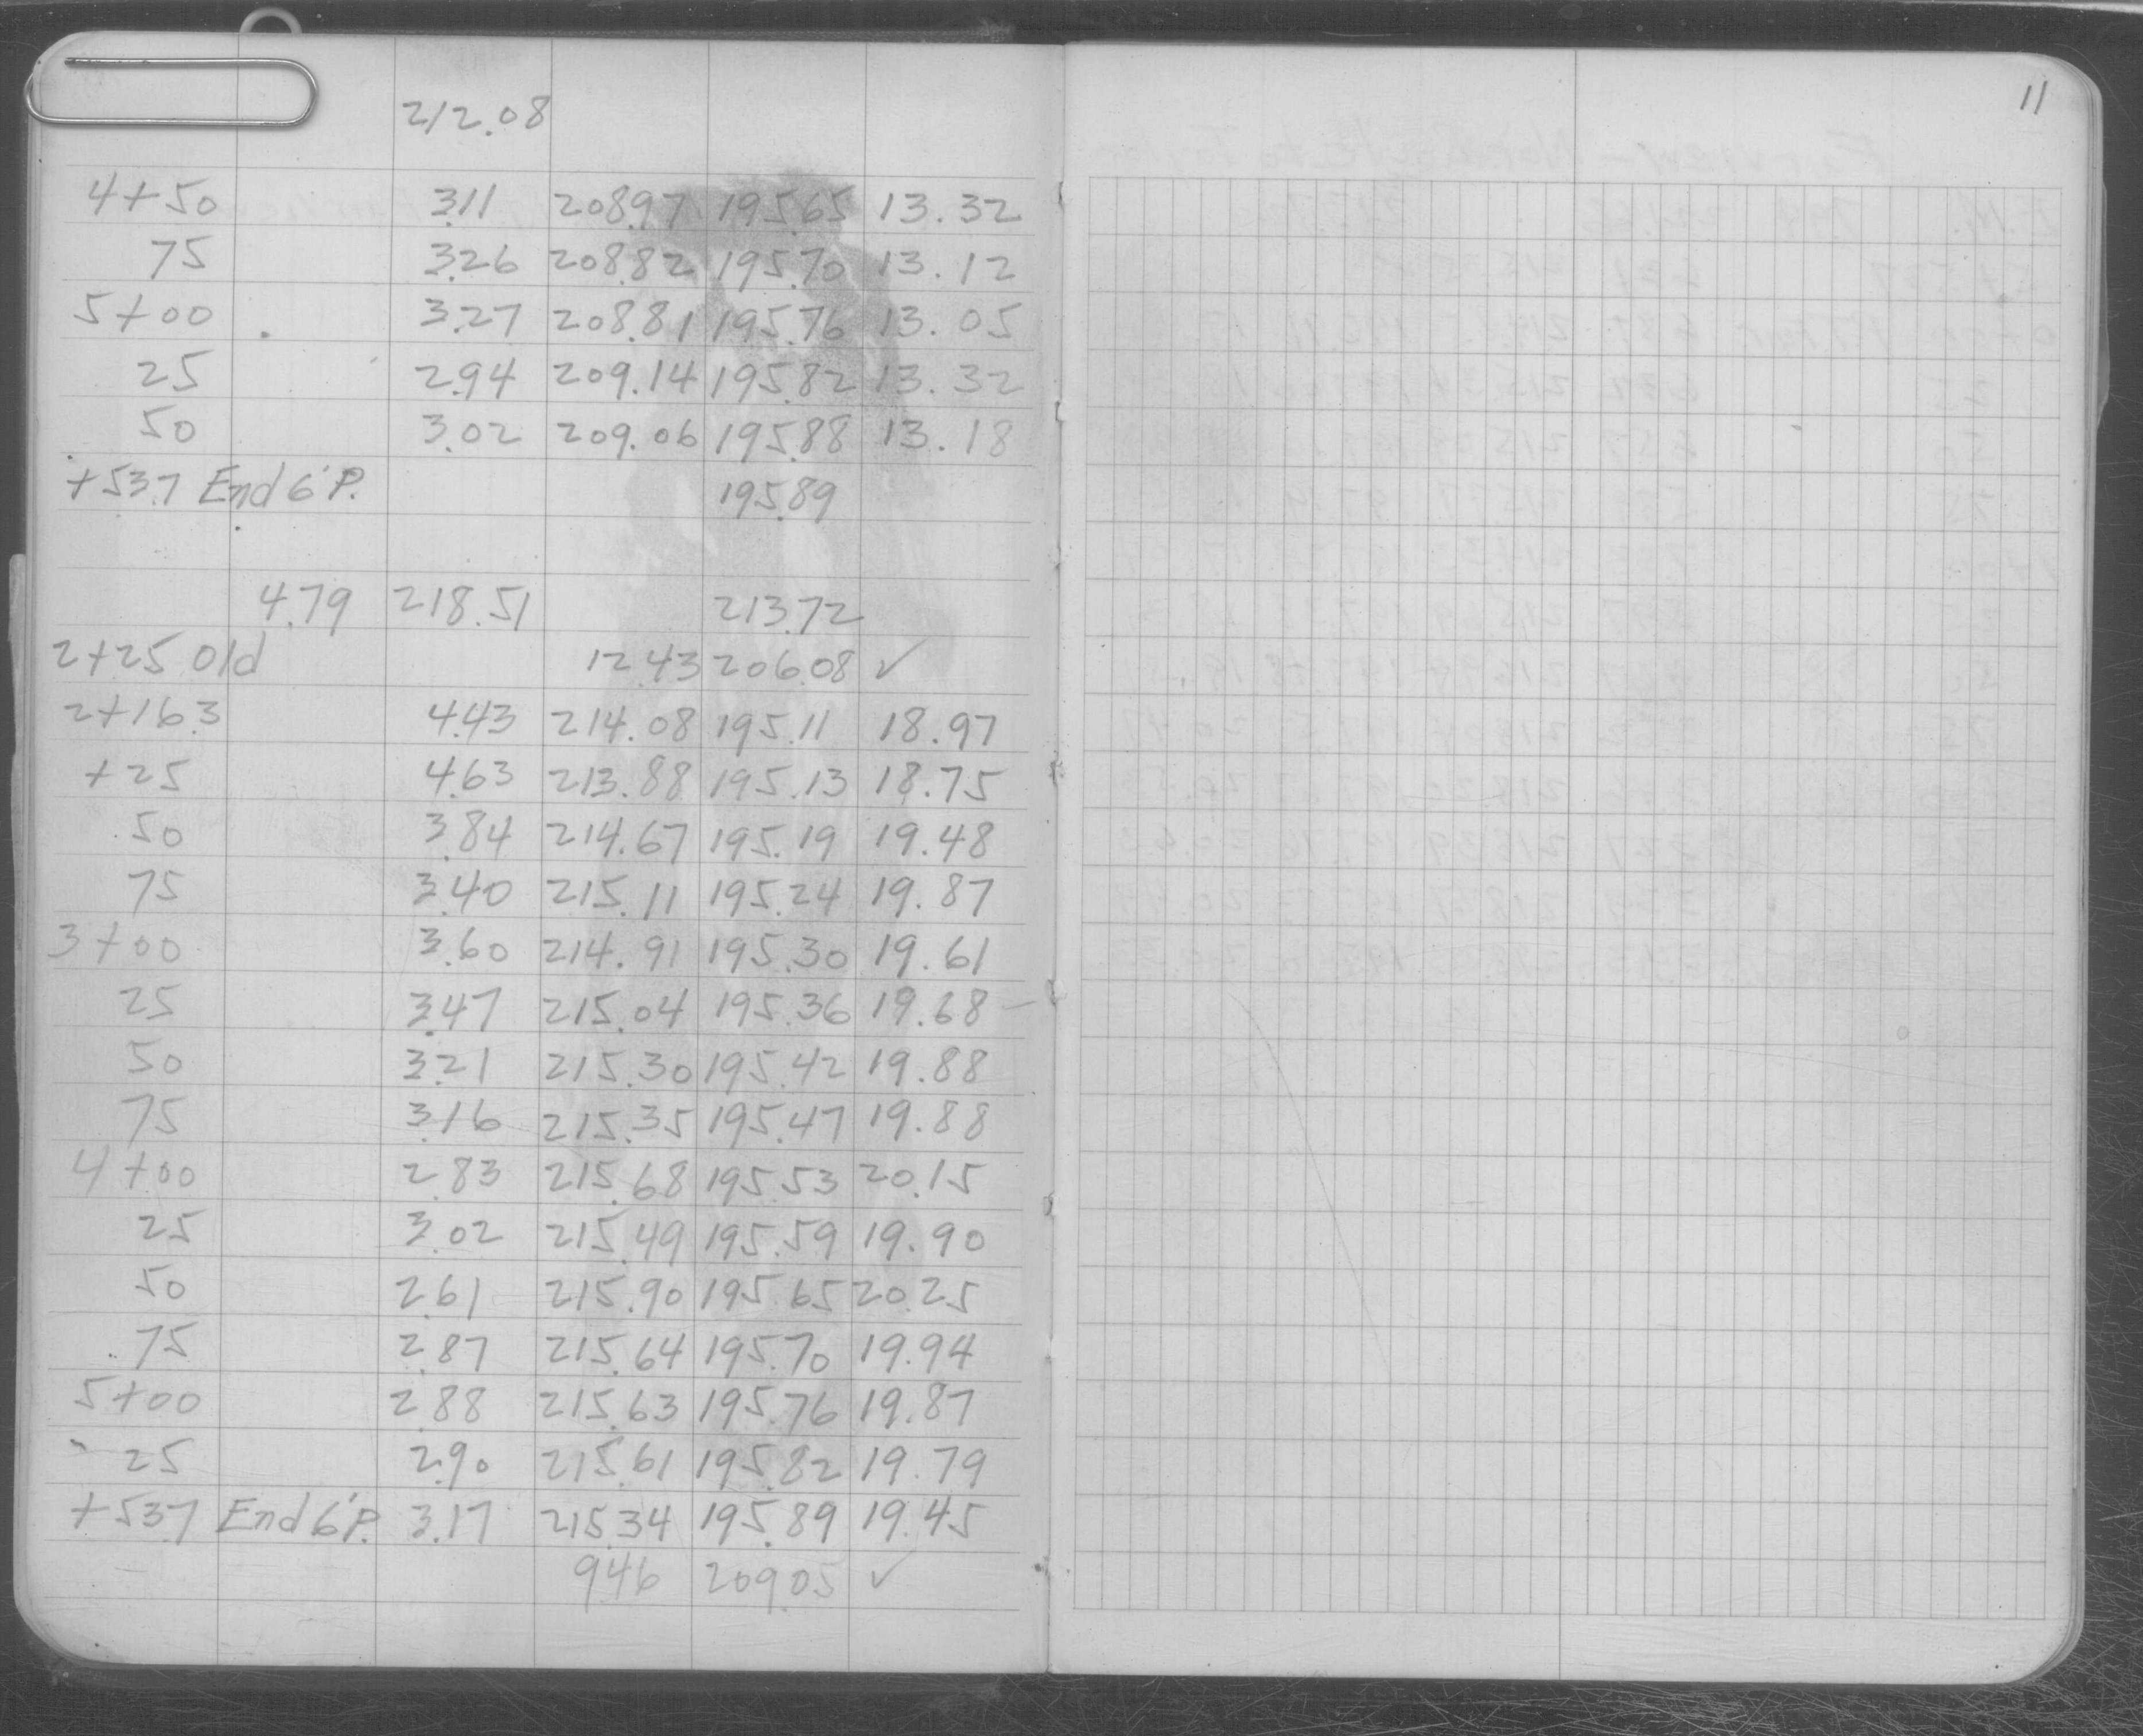 11
212.08
4+50 3.11 208.97 195.65 13.32
75 3.26 208.82 195.70 13.12
5+00 3.27 208.81 195.76 13.05
25 2.94 209.14 195.82 13.32
50 3.02 209.06 195.88 13.18
+53.7 End 6'P. 195.89
4.79 218.51 213.72
2+25 Old 12.43 206.08 ✓
2+16.3 4.43 214.08 195.11 18.97
+25 4.63 213.88 195.13 18.75
50 3.84 214.67 195.19 19.48
75 3.40 215.11 195.24 19.87
3+00 3.60 214.91 195.30 19.61
25 3.47 215.04 195.36 19.68 –
50 3.21 215.30 195.42 19.88
75 3.16 215.35 195.47 19.88
4+00 2.83 215.68 195.53 20.15
25 3.02 215.49 195.59 19.90
50 2.61 215.90 195.65 20.25
75 2.87 215.64 195.70 19.94
5+00 2.88 215.63 195.76 19.87
25 2.90 215.61 195.82 19.79
+53.7 End 6'P. 3.17 215.34 195.89 19.45
9.46 209.05 ✓